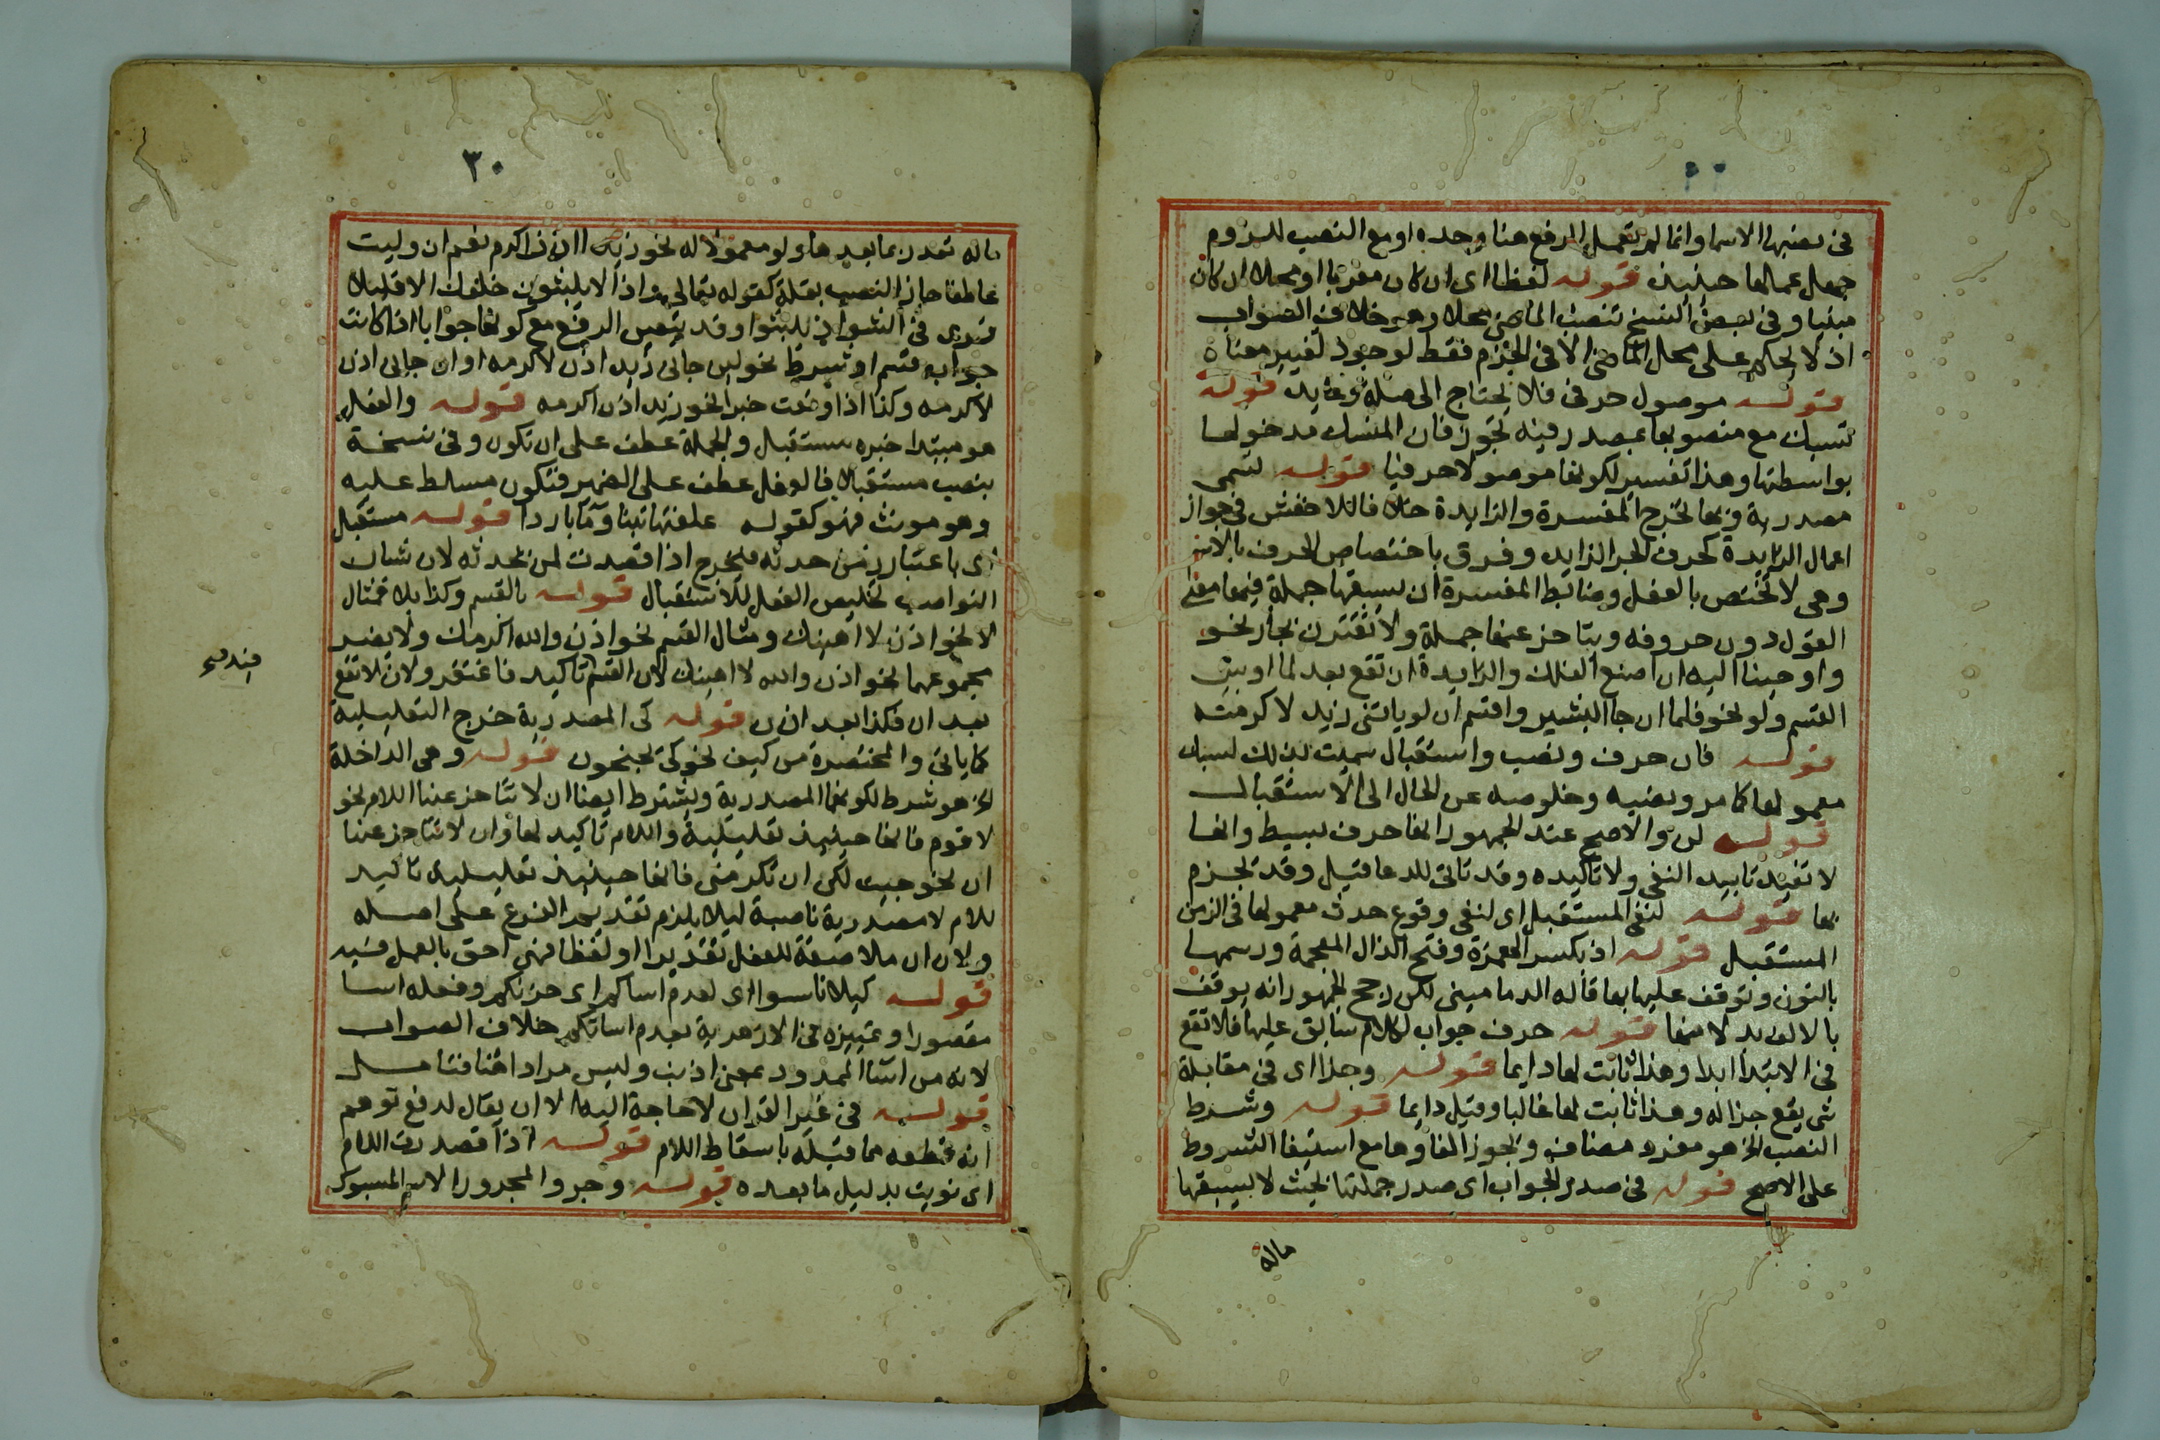 في نصبها الاسما وانما لم تعمل الرفع هنا وحده او مع النصب للزوم
جعل عمالها حينيذ قوله لفظا اي ان كان معربا او محلا ان كان
مبنيا وفي بعض النسخ تنصب الماضي محلا وهي خلاف الصواب
اذ لا يحكم على محل الماضي الا في الجزم فقط لوجود تغيير معناه
قوله موصول حرفي فلا يحتاج الى صلة وعايد قوله
تسبك مع منصوبها بمصدر فيه تجوز فان المنسبك مدخولها
بواسطتها وهذا تفسير لكونها موصولا حرفيا قوله تسمى
مصدرية وبها تخرج المفسرة والزايدة خلافا للاخفش في جواز
اعمال الزايدة كحرف الجر الزايد وفرق باختصاص الحرف بالاسم
وهي لا تختص بالفعل وضابط المفسرة ان يسبقها جملة فيها معنى
القول دون حروفه ويتاخر عنها جملة ولا تقترن بجار نحو
واوحينا اليه ان اصنع الفلك والزايدة ان تقع بعد لما او بين
القسم ولو نحو فلما ان جا البشير واقسم ان لو ياتني زيد لاكرمته
قوله فان حرف ونصب واستقبال سميت بذلك لسبك
معمولها كما مر ونصبه وخلوصه عن الحال الى الاستقبال
قوله لن والاصح عند الجمهور انها حرف بسيط وانها
لا تفيد تابيد النفي ولا تاكيده وقد تاتي للدعا قيل وقد تجزم
بها قوله لنفي المستقبل اي لنفي وقوع حدث معمولها في الزمن
المستقبل قوله اذ بكسر الهمزة وفتح الذال المعجمة ورسمها
بالنون وتوقف عليها بها قاله الدماميني لكن رجح الجمهور انه يوقف
بالالف بدلا منها قوله حرف جواب لكلام سابق عليها فلا تقع
في الابتدا ابدا وهذا ثابت لها دايما قوله وجزا اي في مقابلة
شي يقع جزا له وهذا ثابت لها غالبا وقيل دايما قوله وشرط
النصب الخ هو مفرد مضاف ويجوز الغاوها مع استيفا الشروط
على الاصح قوله في صدر الجواب اي صدر جملتها بحيث لا يسبقها
ماله
٣٠
ماله تصدر بما بعدها ولو معمولا له نحو زيدا اذن اكرم نعم ان وليت
عاطفا جاز النصب بقلة كقوله تعالى واذا لا يلبثون خلفك الا قليلا
قري في الشواذ يلبثوا وقد يتعين الرفع مع كونها جوابا اذا كانت
جواب قسم او شرط نحو لين جاني زيد اذن لاكرمه او ان جاني اذن
لاكرمه وكذا اذا وقعت خبرا نحو زيد اذن اكرمه قوله والفعل
هو مبتدا خبره مستقبل والجملة عطف على ان تكون وفي نسخة
بنصب مستقبلا فالفعل عطف على الضمير فتكون مسلط عليه
وهو مونث فهو كقوله علفتها تبنا وما باردا قوله مستقبل
اي باعتبار زمن حدثه فيخرج اذا قصدت لمن يحدثه لان شان
النواصب تخليص الفعل للاستقبال قوله بالقسم وكذا بلا فمثال
لا نحو اذن لا اهينك ومثال القسم نحو اذن والله اكرمك ولا يضر
مجموعهما نحو اذن والله لا اهينك لان القسم تاكيد فاغتفر ولان لا تقع
فيندمي
بعد ان فكذا بعد اذن قوله كي المصدرية خرج التعليلية
كما ياتي والمختصرة من كيف نحو كي تجنحون قوله وهي الداخلة
الخ هو شرط لكونها المصدرية ويشترط ايضا ان لا تتاخر عنها اللام نحو
لاقوم فانها حينيذ تعليلية واللام تاكيد لها وان لا تتاخر عنها
ان نحو جيت لكي ان تكرمني فانها حينيذ تعليلية تاكيد
للام لا مصدرية ناصبة ليلا يلزم تقديم الفرع على اصله
ولان ان ملاصقة للفعل تقديرا او لفظا فهي احق بالعمل فيه
قوله كيلا تاسوا اي لعدم اساكم اي حزنكم وفعله اسا
مقصورا وتمييزه في الازهرية بعدم اساتكم خلاف الصواب
لانه من اسا الممدود بمعنى اذنب وليس مرادا هنا فتامل
قوله في غير القران لا حاجة اليه الا ان يقال لدفع توهم
انه قطعه مما قبله باسقاط اللام قوله اذا قصدت اللام
اي نويت بدليل ما بعده قوله وجر والمجرور الاسم المسبوك